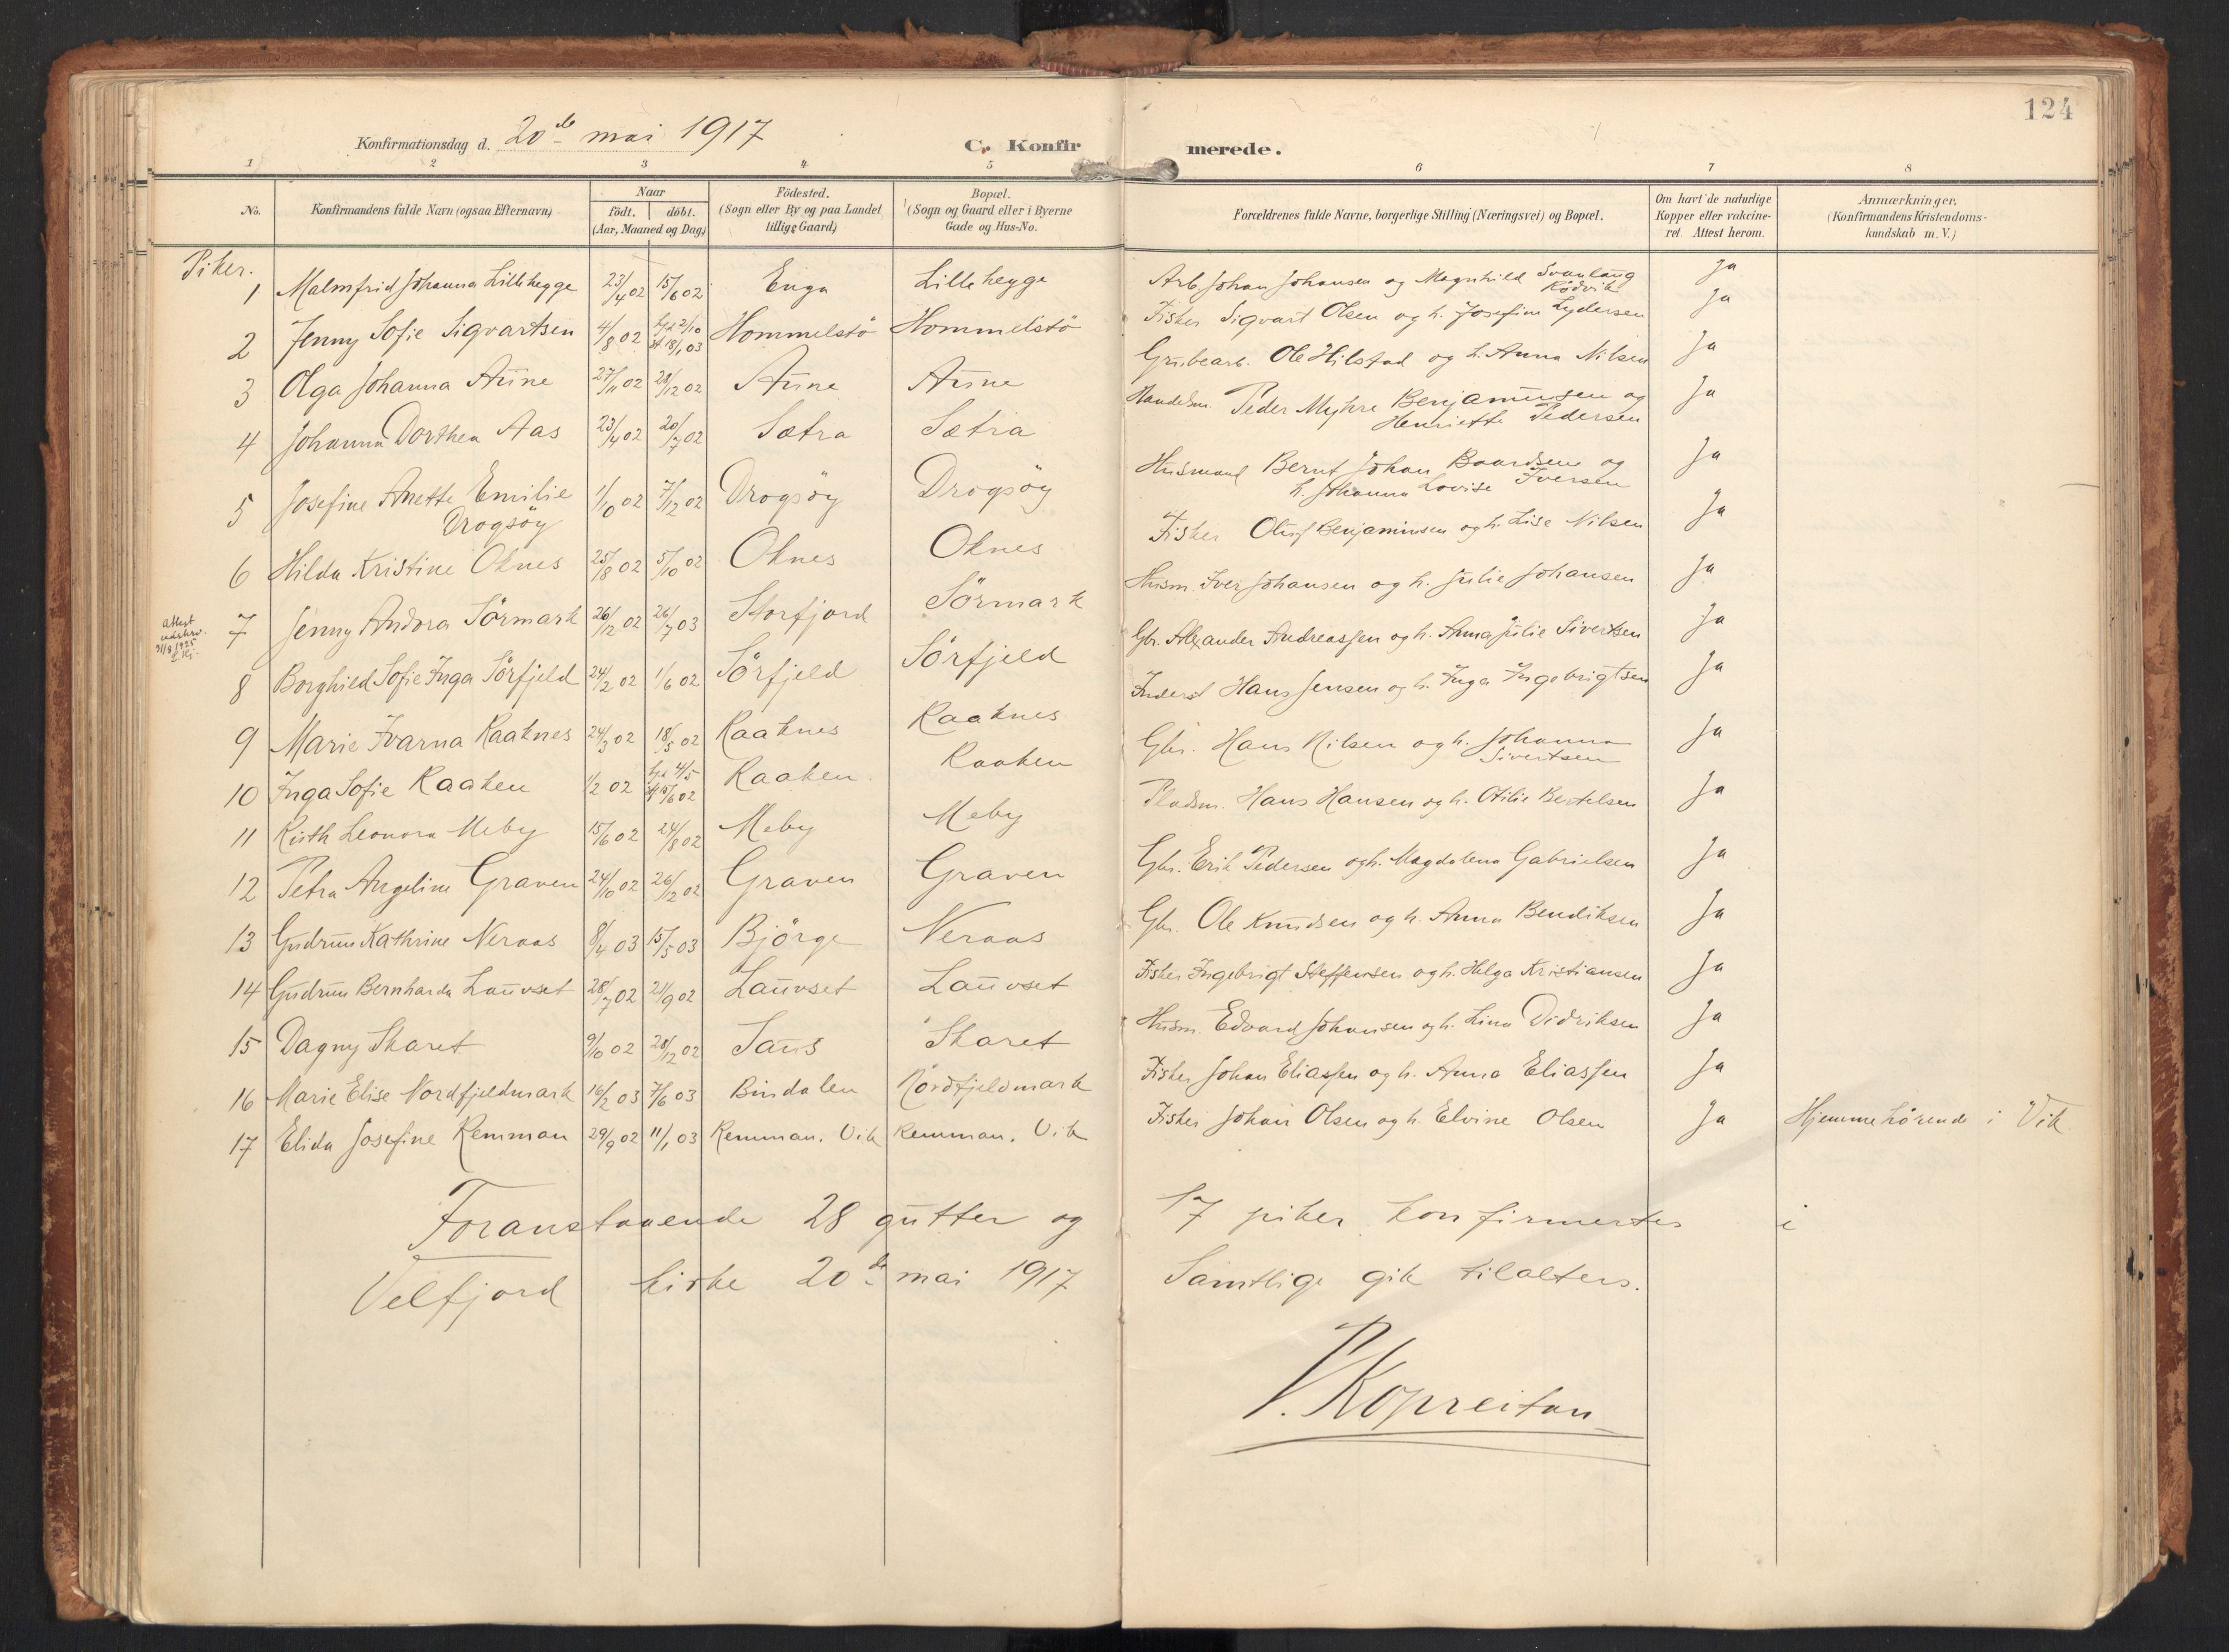 124
Konfirmationsdag d. 20de mai 1917 C. Konfir merede.
1 2 3 4 5 6 7 8
No. Konfirmandens fulde Navn (ogsaa Efternavn) Naar födt. döbt. (Aar, Maaned og Dag) Födested. (Sogn eller By og paa Landet tillige Gaard) Bopæl. (Sogn og Gaard eller i Byerne Gade og Hus-No. Forældrenes fulde Navne, borgerlige Stilling (Næringsvei) og Bopæl. Om havt de naturlige Kopper eller vakcineret. Attest herom. Anmærkninger. (Konfirmandens Kristendomskundskab m.V.)
Piker.
1 Malmfrid Johanna Lillehegge 23/4 02 15/6 02 Enga Lillehegge Arb. Johan Johansen og Magnhild Svanlaug Rödvik Ja
2 Jenny Sofie Sigvartsen 4/8 02 hjd 2/10 st 18/1 03 Hommelstö Hommelstö Fisker Sigvart Olsen og h. Josefine Lydersen Ja
3 Olga Johanna Aune 27/11 02 28/12 02 Aune Aune Grubearb. Ole Hilstad og h. Anna Nilsen Ja
4 Johanna Dorthea Aas 23/4 02 20/7 02 Sætra Sætra Handelsm. Peder Myhre Benjaminsen og Henriette Pedersen Ja
5 Josefine Anette Emilie Drogsöy 1/10 02 7/12 02 Drogsöy Drogsöy Husmand Bernt Johan Baardsen og h. Johanna Lovise Iversen Ja
6 Hilda Kristine Oknes 25/8 02 5/10 02 Oknes Oknes Fisker Oluf Benjaminsen og h. Lise Nilsen Ja
Attest udskrv. 31/8 1925
7 Jenny Andora Sörmark 26/12 02 26/7 03 Storfjord Sörmark Husm. Iver Johansen og h. Julie Johansen Ja
8 Borghild Sofie Inga Sörfjeld 24/2 02 1/6 02 Sörfjeld Sörfjeld Gbr. Alexander Andreassen og h. Anna Julie Sivertsen Ja
9 Marie Ivarna Kaaknes 24/3 02 18/5 02 Kaaknes Kaaknes Inderst Hans Jensen og h. Inga Ingebrigtsen Ja
10 Inga Sofie Kaaken 1/2 02 hjd 4/5 st 15/6 02 Kaaken Kaaken Gbr. Hans Nilsen og h. Johanna Sivertsen Ja
11 Ruth Leonora Meby 15/6 02 24/8 02 Meby Meby Pladsm. Hans Hansen og h. Otilie Bertelsen Ja
12 Petra Angeline Graven 24/10 02 26/12 02 Graven Graven Gbr. Erik Pedersen og h. Magdalena Gabrielsen Ja
13 Gudrun Kathrine Neraas 8/4 03 15/5 03 Björge Neraas Gbr. Ole Knudsen og h. Anna Bendiksen Ja
14 Gudrun Bernharda Lauvset 28/7 02 21/9 02 Lauvset Lauvset Fisker Ingebrigt Steffensen og h. Helga Kristiansen Ja
15 Dagny Skaret 9/10 02 28/12 02 Saus Skaret Husm. Edvard Johansen og h. Lina Didriksen Ja
16 Marie Elise Nordfjeldmark 16/2 03 7/6 03 Bindalen Nordfjeldmark Fisker Johan Eliassen og h. Anna Eliassen Ja
17 Elida Josefine Remman 29/9 02 11/1 03 Remman, Vik Remman, Vik Fisker Johan Olsen og h. Elvine Olsen Ja Hjemmehörende i Vik
Foranstaaende 28 gutter og 17 piker konfirmertes i
Velfjord kirke 20de mai 1917 Samtlige gik tilalters.
P. Kopreitan